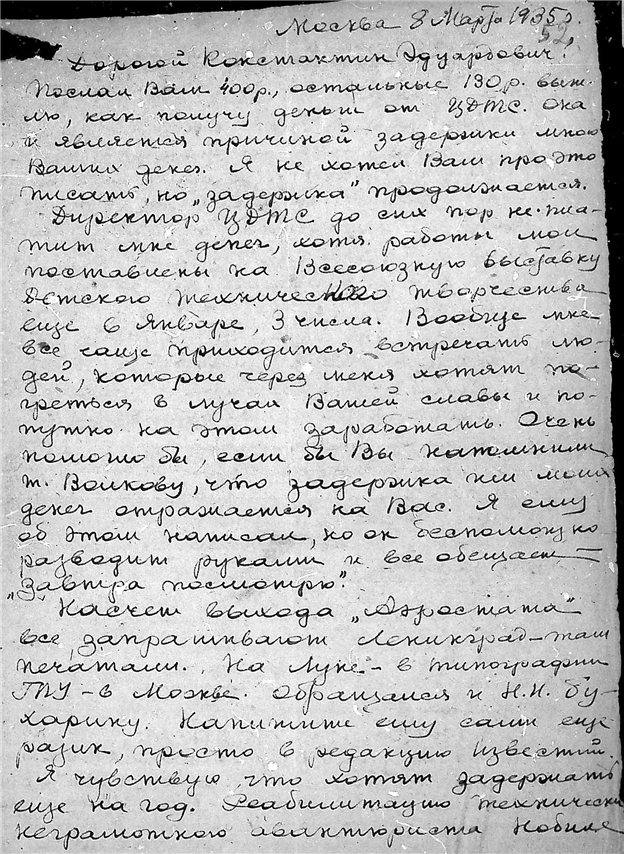 Москва 8 Марта 1935 г.
52
Дорогой Константин Эдуардович!
Послал Вам 400 р., остальные 130 р. выш-
лю, как получу деньги от ЦДТС. Она
и является причиной задержки мною
Ваших денег. Я не хотел Вам про это
писать, но „задержка" продолжается.
Директор ЦДТС до сих пор не пла-
тит мне денег, хотя работы мои
поставлены на Всесоюзную выставку
детского технического творчества
еще в январе, 3 числа. Вообще мне
все чаще приходится встречать лю-
дей, которые через меня хотят по-
греться в лучах Вашей славы и по-
путно на этом заработать. Очень
помогло бы, если бы Вы напомнили
т. Волкову, что задержка им моих
денег отражается на Вас. Я ему
об этом написал, но он беспомощно
разводит руками и все обещает —
„Завтра посмотрю".
Насчет выхода „Аэростата"
все запрашивают Ленинград — там
печатали. „На Луне" — в типографии
ГПУ — в Москве. Обращался и Н.И. Бу-
харину. Напишите ему сами еще
разик, просто в редакцию Известий.
Я чувствую, что хотят задержать
еще на год. Реабилитацию технически
неграмотного авантюриста Нобиле